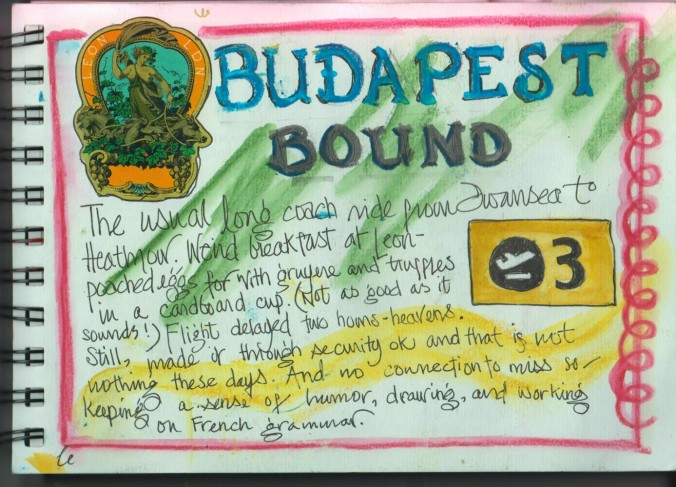 LEON LDN
BUDAPEST
BOUND
The usual long coach ride from Swansea to
Heathrow. Weird breakfast at Leon-
poached eggs for with gruyere and truffles
in a cardboard cup. (Not as good as it
sounds!) Flight delayed two hours-heavens.
3
Still, made it through security ok and that is not
nothing these days. And no connection to miss so-
keeping a sense of humor, drawing, and working
on French grammar.